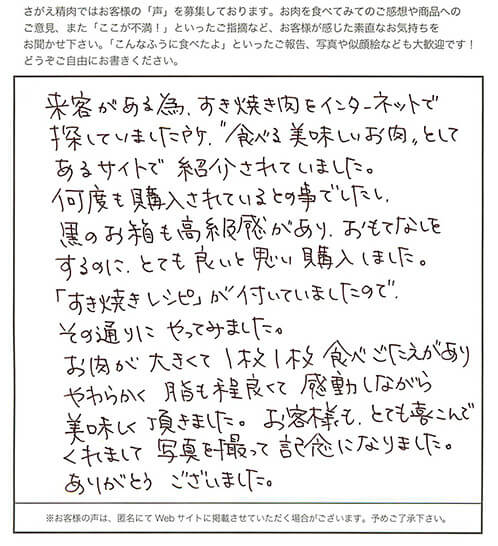 さがえ精肉ではお客様の「声」を募集しております。お肉を食べてみてのご感想や商品への
ご意見、また「ここが不満！」といったご指摘など、お客様が感じた素直なお気持ちを
お聞かせ下さい。「こんなふうに食べたよ」といったご報告、写真や似顔絵なども大歓迎です！
どうぞご自由にお書きください。
来客がある為、すき焼き肉をインターネットで
探していました所、"食べる美味しいお肉"として
あるサイトで紹介されていました。
何度も購入されているとの事でしたし、
黒のお箱も高級感があり、おもてなしを
するのに、とても良いと思い購入しました。
「すき焼きレシピ」が付いていましたので、
その通りにやってみました。
お肉が大きくて1枚1枚食べごたえがあり
やわらかく脂も程良くて感動しながら
美味しく頂きました。お客様も、とても喜こんで
くれまして写真を撮って記念になりました。
ありがとうございました。
※お客様の声は、匿名にてWebサイトに掲載させていただく場合がございます。予めご了承下さい。